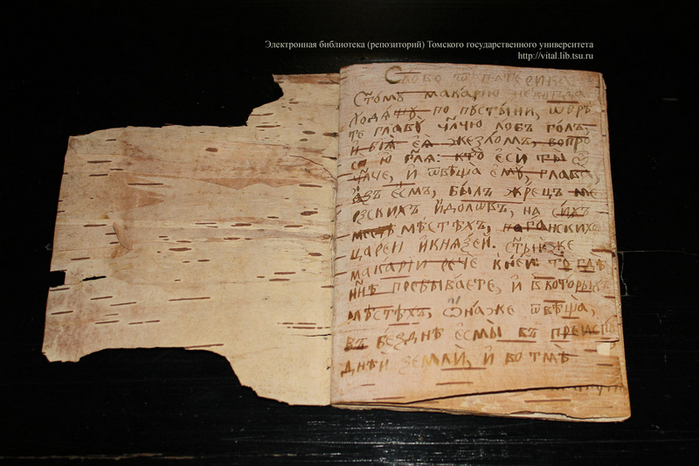 Электронная библиотека (репозиторий) Томского государственного университета
http://vital.lib.tsu.ru
Слово ѿ патерика
ст҃омъ макарию
ходѧ по пꙋстыни, ѡбрѣ
те главꙋ чл҃чю лобъ голъ,
и бїѧ еѧ жезломъ, вопро
си ю гл҃ѧ: кто еси ты
чл҃че, и ѿвѣща емꙋ глава,
азъ есмь, былъ жрецъ ме
рзскихъ идолѡвъ, на сихъ
мѣстѣхъ, поганскихъ
царей и князей. ст҃ый же
макарїй рече к ней: то гдѣ
нн҃ѣ пребываете, и в которыхъ
мѣстѣхъ, ѡна же ѿвѣща,
въ безднѣ есмы въ преиспо
днѣй земли, и во тмѣ